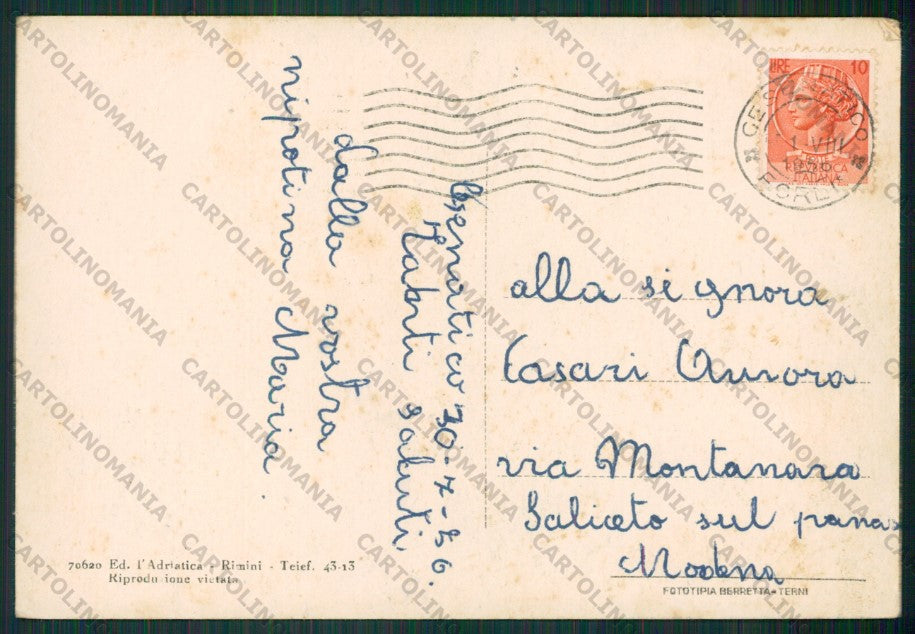 Cesenatico 30-7-56.
Tanti saluti
dalla vostra
nipotina Maria.
LIRE 10
CESENATICO
1 VIII
1956
FORLI
alla signora
Casari Aurora
via Montanara
Saliceto sul pana
Modena
70620 Ed. l'Adriatica - Rimini - Telef. 43-13
Riproduzione vietata
FOTOTIPIA BERRETTA-TERNI
CARTOLINOMANIA